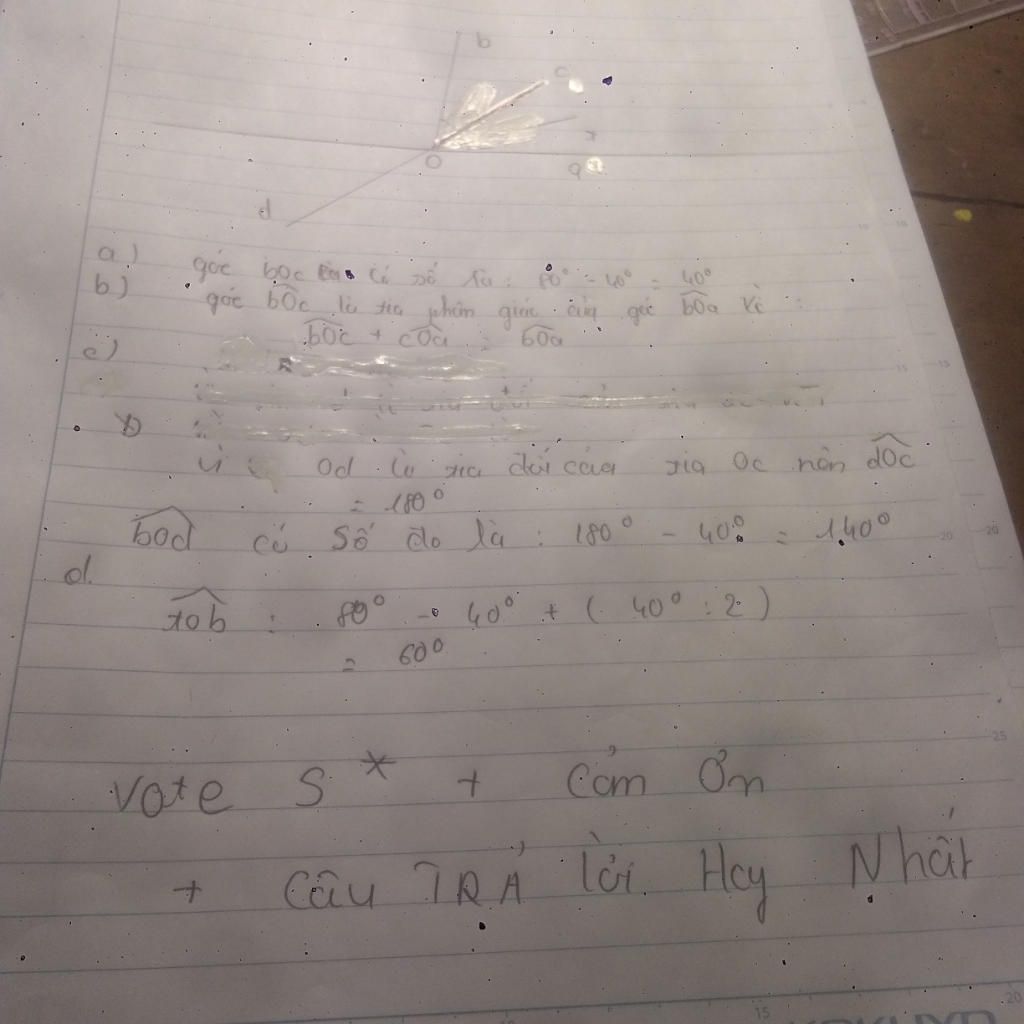 b
c
x
O
a
d
a) góc bOc có số là: 80° - 40° = 40°
b) góc bOc là tia phân giác của góc bOa Vì :
bOc + cOa = bOa
c)
Vì Od là tia đối của tia Oc nên dOc
= 180°
bOd có số đo là : 180° - 40° = 140°
d.
xOb : 80° - 40° + ( 40° : 2 )
= 60°
Vote 5 * + Cảm Ơn
+ Câu TRẢ lời Hay Nhất
15
20
20
25
15
20